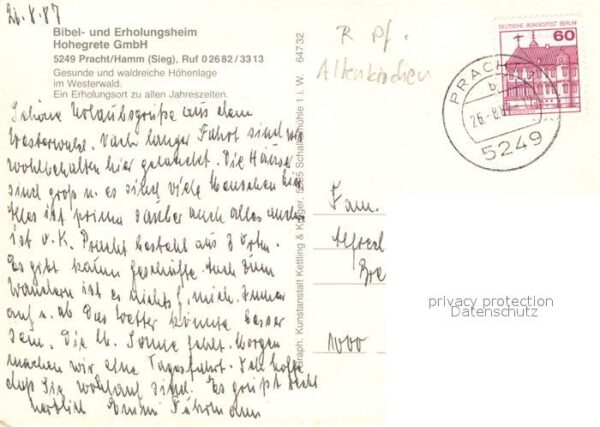 26.8.87
Bibel- und Erholungsheim
Hohegrete GmbH
5249 Pracht/Hamm (Sieg), Ruf 0 26 82 / 33 13
Gesunde und waldreiche Höhenlage
im Westerwald.
Ein Erholungsort zu allen Jahreszeiten.
Schöne Urlaubsgrüße aus dem
Westerwald. Nach langer Fahrt sind wir
wohlbehalten hier gelandet. Die Häuser
sind groß u. es sind viele Menschen hier
Alles ist prima sauber auch alles andere
ist o.K. Pracht besteht aus 3 Ortn.
Es gibt kaum Geschäfte. Auch zum
Wandern ist es nichts f. mich. Immer
auf u. ab Das Wetter könnte besser
sein. Die lb. Sonne fehlt. Morgen
machen wir eine Tagesfahrt. Ich hoffe
daß Sie wohlauf sind. Es grüßt recht
herzlich
Graph. Kunstanstalt Kettling & Krüger, Schalksmühle 1 i. W. 64732
R Pf.
Altenkirchen
DEUTSCHE BUNDESPOST BERLIN
60
PRACHT
b
26.-8.8
5249
Fam.
Alfred
Bre
1000
privacy protection
Datenschutz